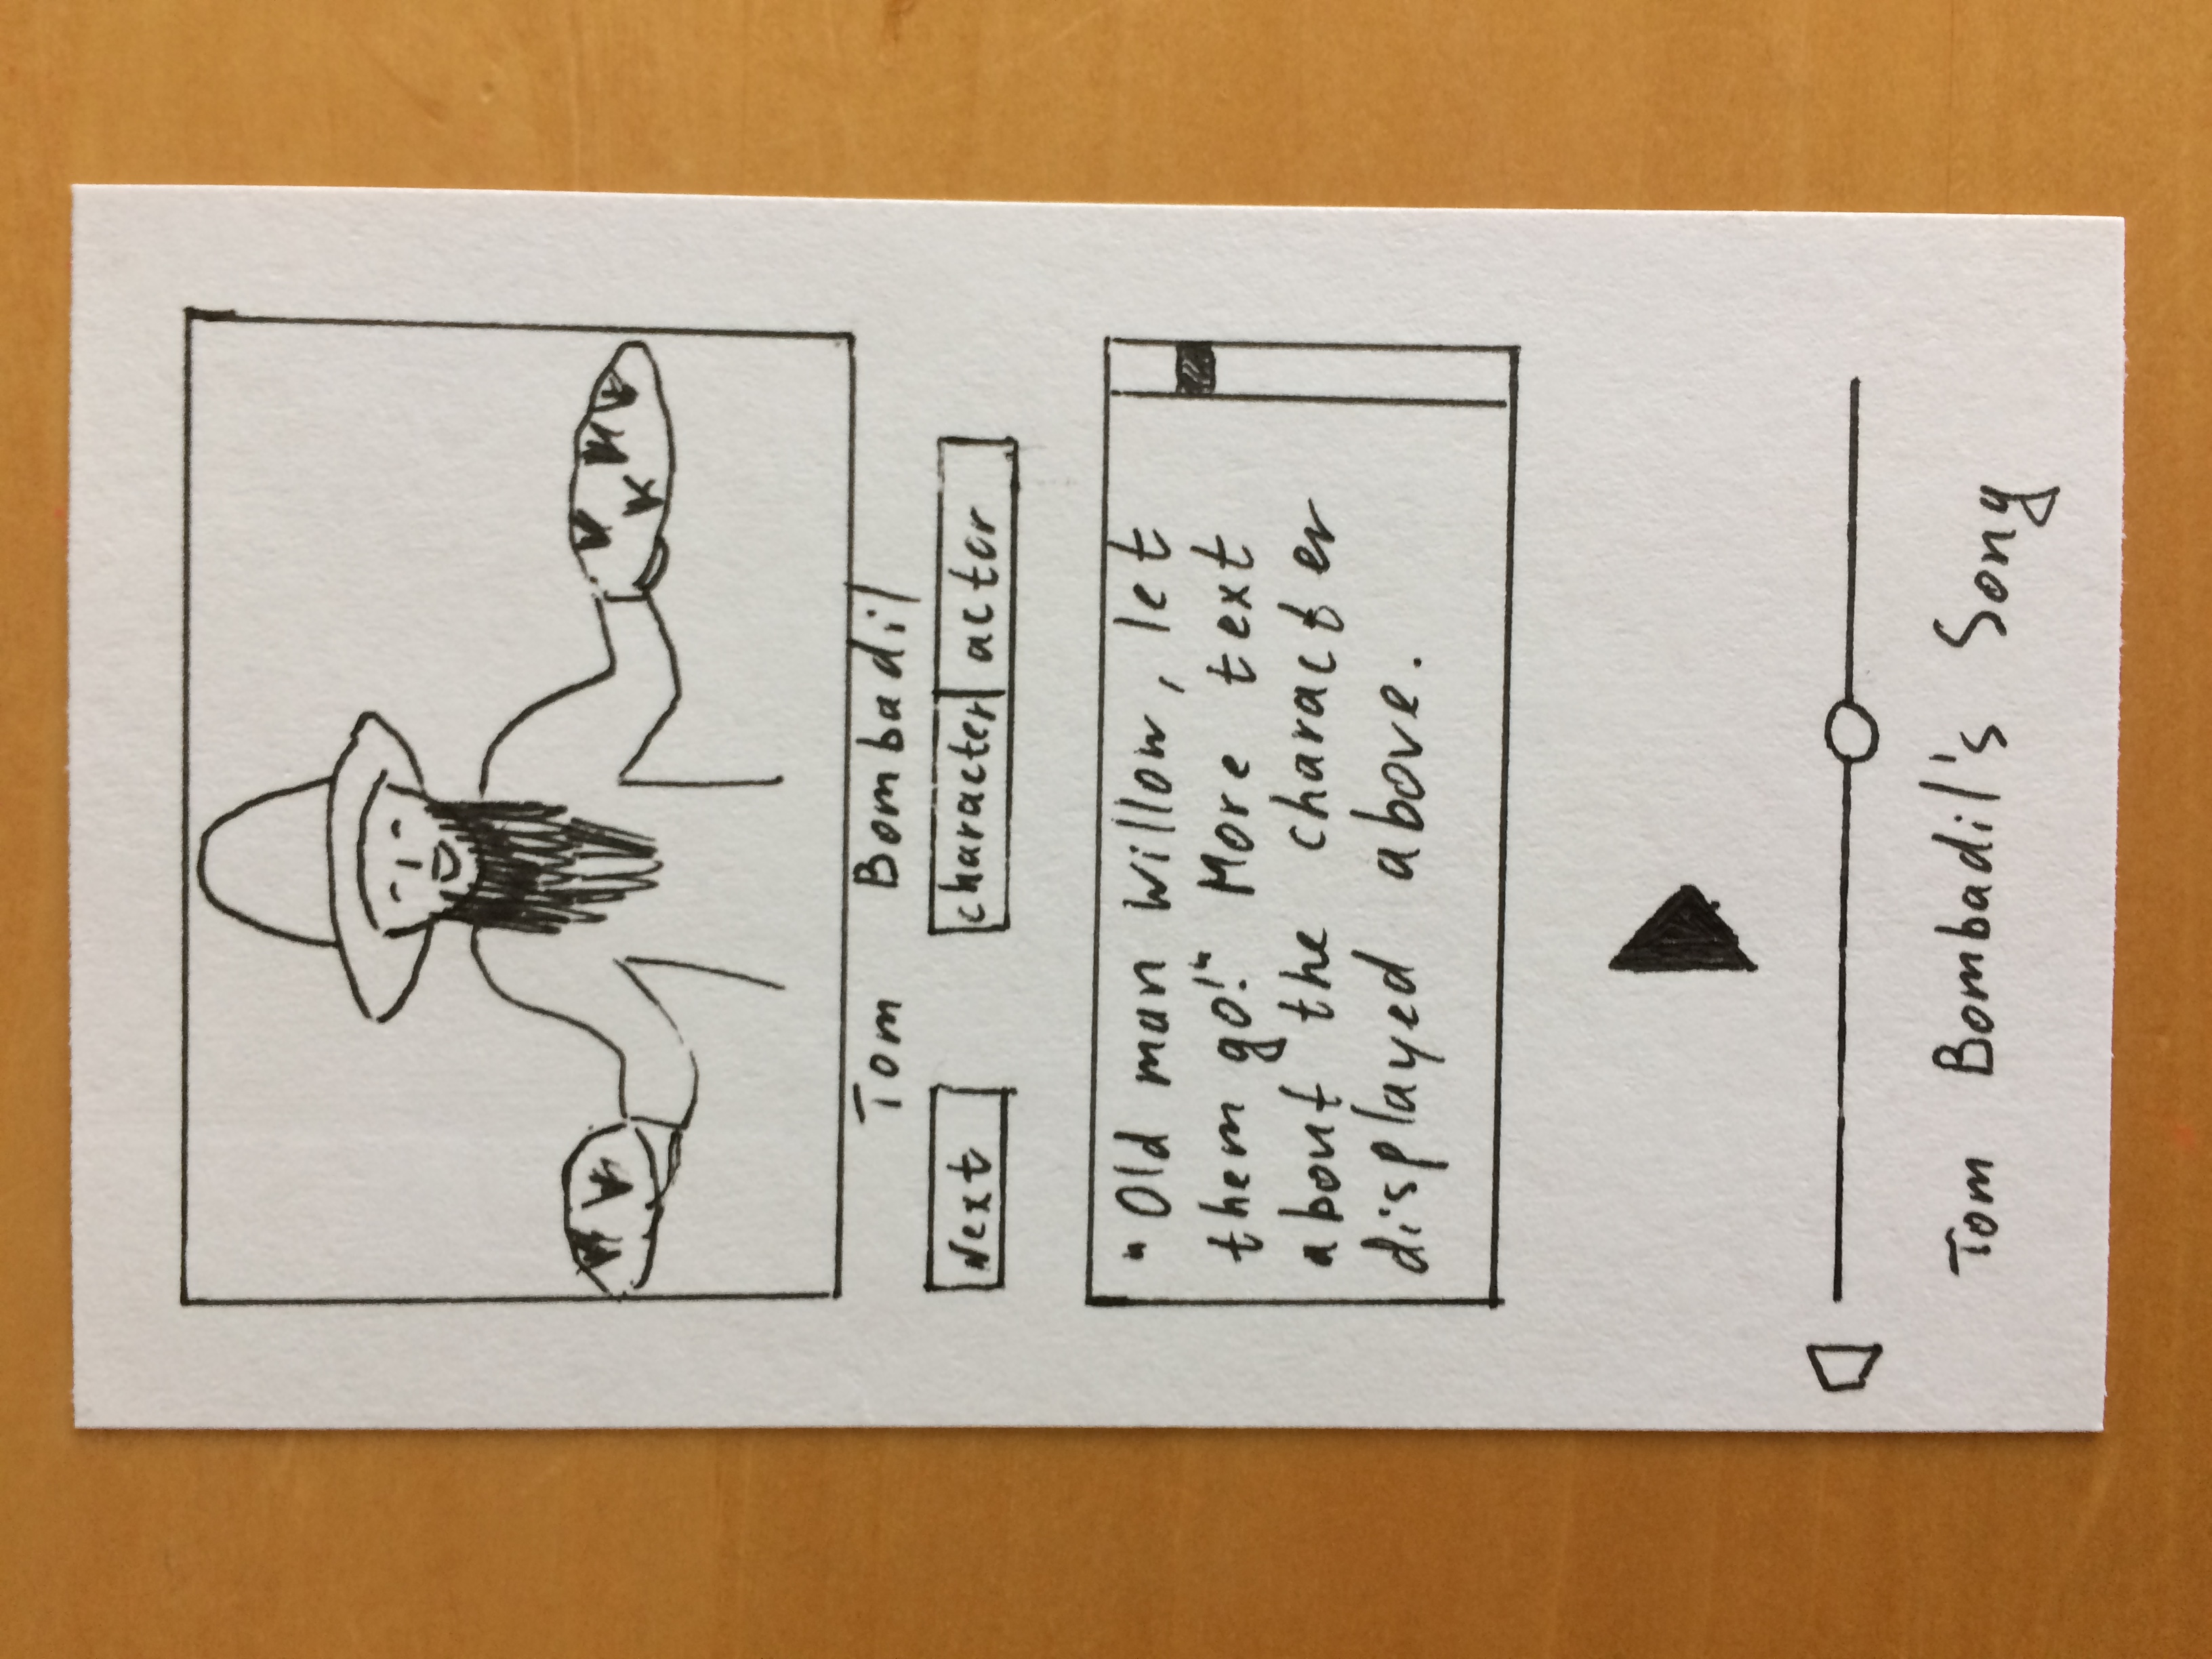 Tom Bombadil
Next
character actor
"Old man Willow, let
them go!" More text
about the character
displayed above.
Tom Bombadil's Song